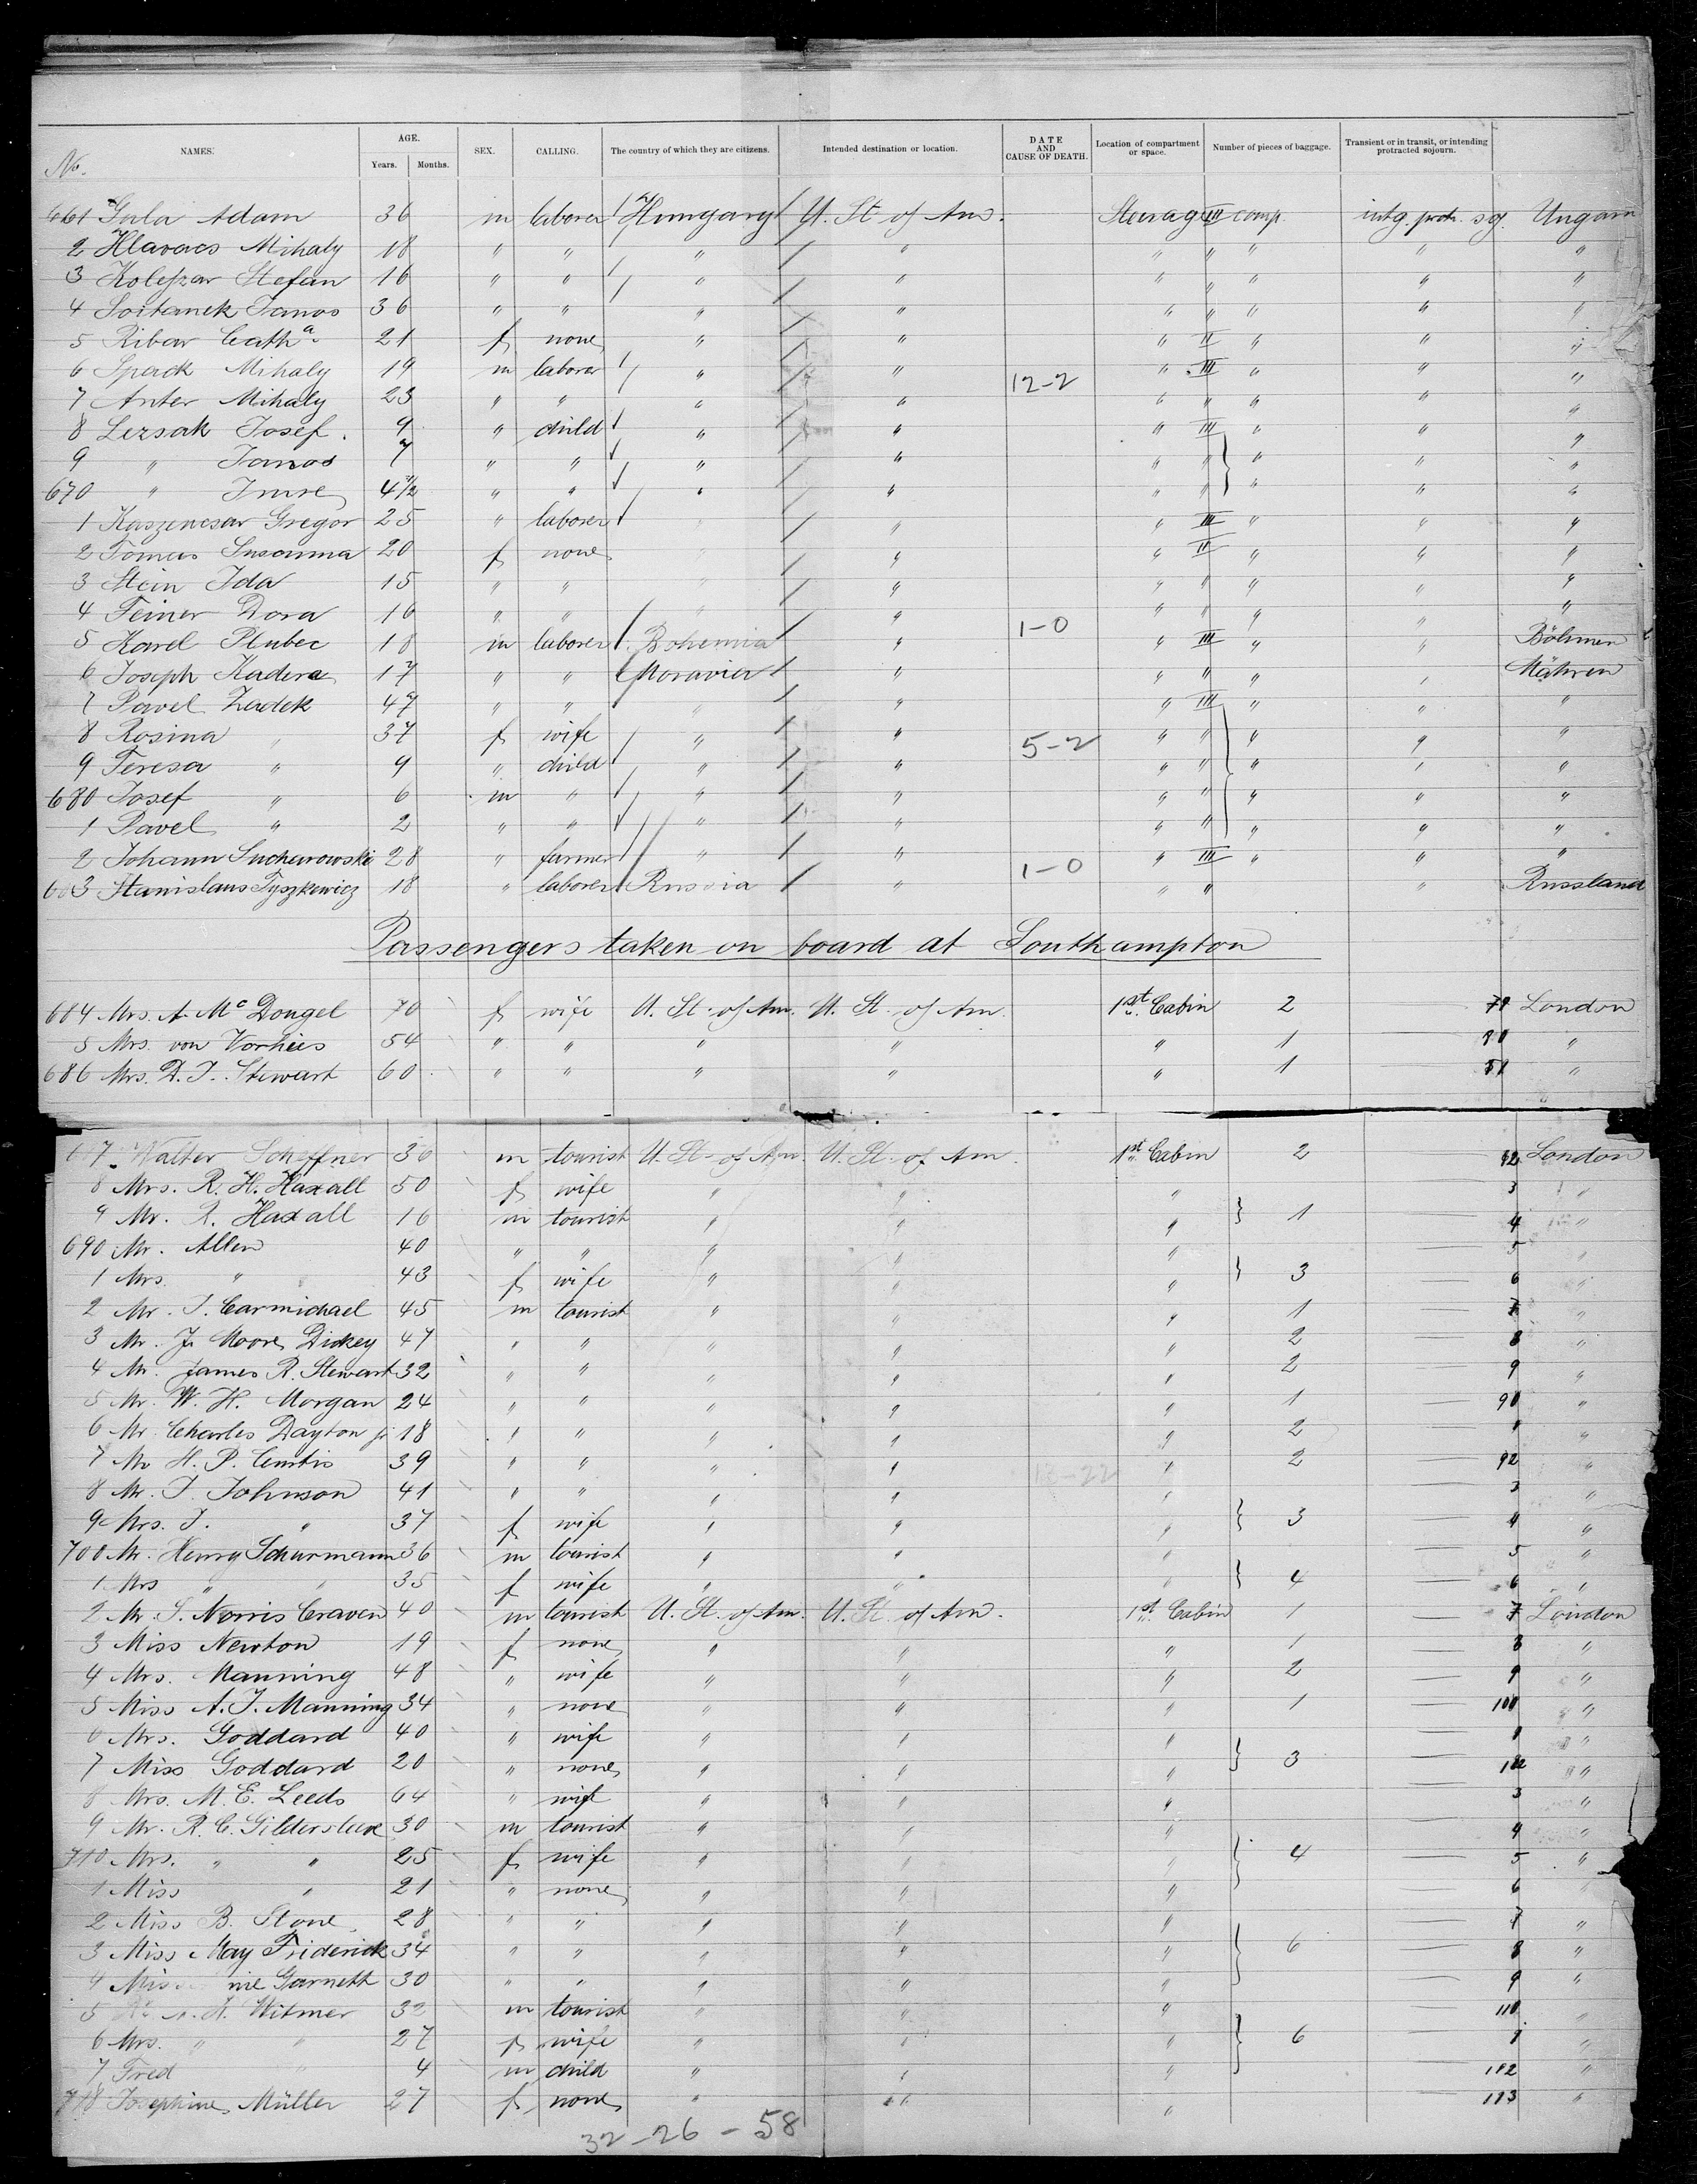 No. NAMES. AGE. Years. Months. SEX. CALLING. The country of which they are citizens. Intended destination or location. DATE AND CAUSE OF DEATH. Location of compartment or space. Number of pieces of baggage. Transient or in transit, or intending protracted sojourn.
661 Gula Adam 36 m laborer Hungary U. St. of Am. Steerage III comp. intg. protr. soj. Ungarn
2 Hlavacs Mihaly 18 " " " " " " " " "
3 Koleszar Stefan 16 " " " " " " " " "
4 Soltanek Janos 36 " " " " " " " " "
5 Ribar Cath.a 21 f none " " " II " " "
6 Spack Mihaly 19 m laborer " " " III " " "
12-2
7 Anter Mihaly 23 " " " " " " " " "
8 Lezsak Josef. 9 " child " " " III " " "
9 " Janos 7 " " " " " " " " "
670 " Imre 4½ " " " " " " " " "
1 Kaszencsar Gregor 25 " laborer " " " III " " "
2 Tomas Susanna 20 f none " " " II " " "
3 Stein Ida 15 " " " " " " " " "
4 Feiner Dora 16 " " " " " " " " "
1-0
5 Karel Plubec 18 m laborer Bohemia " " III " " Böhmen
6 Joseph Kadera 17 " " Moravia " " " " " Mähren
7 Pavel Zadek 47 " " " " " III " " "
8 Rosina " 37 f wife " " " " " " "
5-2
9 Teresa " 9 " child " " " " " " "
680 Josef " 6 m " " " " " " " "
1 Pavel " 2 " " " " " " " " "
2 Johann Sucharowski 28 " farmer " " " III " " "
1-0
683 Stanislaus Tyszkewicz 18 " laborer Russia " " " " Russland
Passengers taken on board at Southampton
684 Mrs. A. Mc Dougel 70 f wife U. St. of Am. U. St. of Am. 1st. Cabin 2 79 London
5 Mrs. von Vorhies 54 " " " " " 1 80 "
686 Mrs. D. J. Stewart 60 " " " " " 1 81 "
687 Walter Scheffner 36 m tourist U. St. of Am. U. St. of Am. 1st. Cabin 2 82 London
8 Mrs. R. H. Haxall 50 f wife " " " 3 "
9 Mr. R. Haxall 16 m tourist " " " 1 4 "
690 Mr. Allen 40 " " " " " 5 "
1 Mrs. " 43 f wife " " " 3 6 "
2 Mr. J. Carmichael 45 m tourist " " " 1 7 "
3 Mr. J. Moore Dickey 47 " " " " " 2 8 "
4 Mr. James R. Stewart 32 " " " " " 2 9 "
5 Mr. W. H. Morgan 24 " " " " " 1 90 "
6 Mr. Charles Dayton jr 18 " " " " " 2 1 "
7 Mr H. P. Curtis 39 " " " " " 2 92 "
8 Mr. J. Johnson 41 " " " " " 3 "
9 Mrs. J. " 37 f wife " " " 3 4 "
700 Mr. Henry Schurmann 36 m tourist " " " 5 "
1 Mrs " " 35 f wife " " " 4 6 "
2 Mr. S. Norris Craven 40 m tourist U. St. of Am. U. St. of Am. 1st. Cabin 1 7 London
3 Miss Newton 19 f none " " " 1 8 "
4 Mrs. Manning 48 " wife " " " 2 9 "
5 Miss A. J. Manning 34 " none " " " 1 100 "
6 Mrs. Goddard 40 " wife " " " 1 "
7 Miss Goddard 20 " none " " " 3 102 "
8 Mrs. M. E. Leeds 64 " wife " " " 3 "
9 Mr. R. C. Gildersleeve 30 m tourist " " " 4 "
710 Mrs. " " 25 f wife " " " 4 5 "
1 Miss " 21 " none " " " 6
2 Miss B. Stone 28 " " " " " 7 "
3 Miss May Friderick 34 " " " " " 6 8 "
4 Miss nie Garnett 30 " " " " " 9 "
5 H. Witmer m tourist " " " 110 "
6 Mrs. " " 27 f wife " " " 6 1 "
7 Fred " 4 m child " " " 112 "
718 Josephine Müller 27 f none " " " 113 "
32-26-58